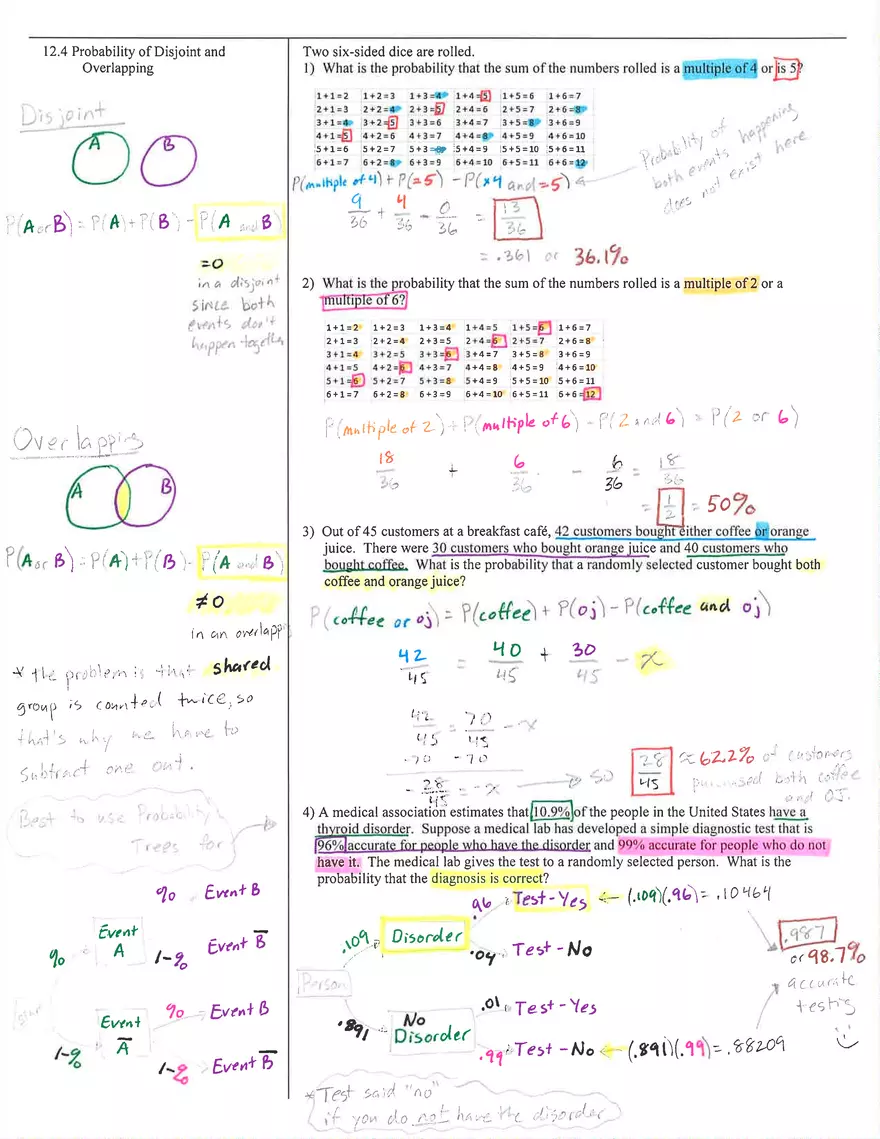 12.4 Probability of Disjoint and
Overlapping
Disjoint
A B
P(A or B) = P(A) + P(B) - P(A and B)
=0
in a disjoint
since both
events don't
happen together
Overlapping
A B
P(A or B) = P(A) + P(B) - P(A and B)
≠0
in an overlapping
* the problem is that shared
group is counted twice, so
that's why we have to
subtract one out.
Best to use Probability
Trees for
% Event B
Event
A
% 1-% Event B̅
% Event B
Event
A̅
1-% 1-% Event B̅
Two six-sided dice are rolled.
1) What is the probability that the sum of the numbers rolled is a multiple of 4 or is 5?
1+1=2 1+2=3 1+3=4 1+4=5 1+5=6 1+6=7
2+1=3 2+2=4 2+3=5 2+4=6 2+5=7 2+6=8
3+1=4 3+2=5 3+3=6 3+4=7 3+5=8 3+6=9
4+1=5 4+2=6 4+3=7 4+4=8 4+5=9 4+6=10
5+1=6 5+2=7 5+3=8 5+4=9 5+5=10 5+6=11
6+1=7 6+2=8 6+3=9 6+4=10 6+5=11 6+6=12
Probability of
both events happening
does not exist here
P(multiple of 4) + P(=5) - P(x4 and =5)
9/36 + 4/36 - 0/36 = 13/36
= .361 or 36.1%
2) What is the probability that the sum of the numbers rolled is a multiple of 2 or a
multiple of 6?
1+1=2 1+2=3 1+3=4 1+4=5 1+5=6 1+6=7
2+1=3 2+2=4 2+3=5 2+4=6 2+5=7 2+6=8
3+1=4 3+2=5 3+3=6 3+4=7 3+5=8 3+6=9
4+1=5 4+2=6 4+3=7 4+4=8 4+5=9 4+6=10
5+1=6 5+2=7 5+3=8 5+4=9 5+5=10 5+6=11
6+1=7 6+2=8 6+3=9 6+4=10 6+5=11 6+6=12
P(multiple of 2) + P(multiple of 6) - P(2 and 6) = P(2 or 6)
18/36 + 6/36 - 6/36 = 18/36
= 1/2 = 50%
3) Out of 45 customers at a breakfast café, 42 customers bought either coffee or orange
juice. There were 30 customers who bought orange juice and 40 customers who
bought coffee. What is the probability that a randomly selected customer bought both
coffee and orange juice?
P(coffee or oj) = P(coffee) + P(oj) - P(coffee and oj)
42/45 = 40/45 + 30/45 - x
42/45 = 70/45 - x
-70 -70
- 28/45 = -x so 28/45 ≈ 62.2% of customers
purchased both coffee
and OJ.
4) A medical association estimates that 10.9% of the people in the United States have a
thyroid disorder. Suppose a medical lab has developed a simple diagnostic test that is
96% accurate for people who have the disorder and 99% accurate for people who do not
have it. The medical lab gives the test to a randomly selected person. What is the
probability that the diagnosis is correct?
.96 Test-Yes ← (.109)(.96) = .10464
.109 Disorder
.04 Test-No
Person
.987
or 98.7%
accurate
testing
.01 Test-Yes
.891 No
Disorder
.99 Test-No ← (.891)(.99) = .88209
* Test said "no"
if you do not have the disorder